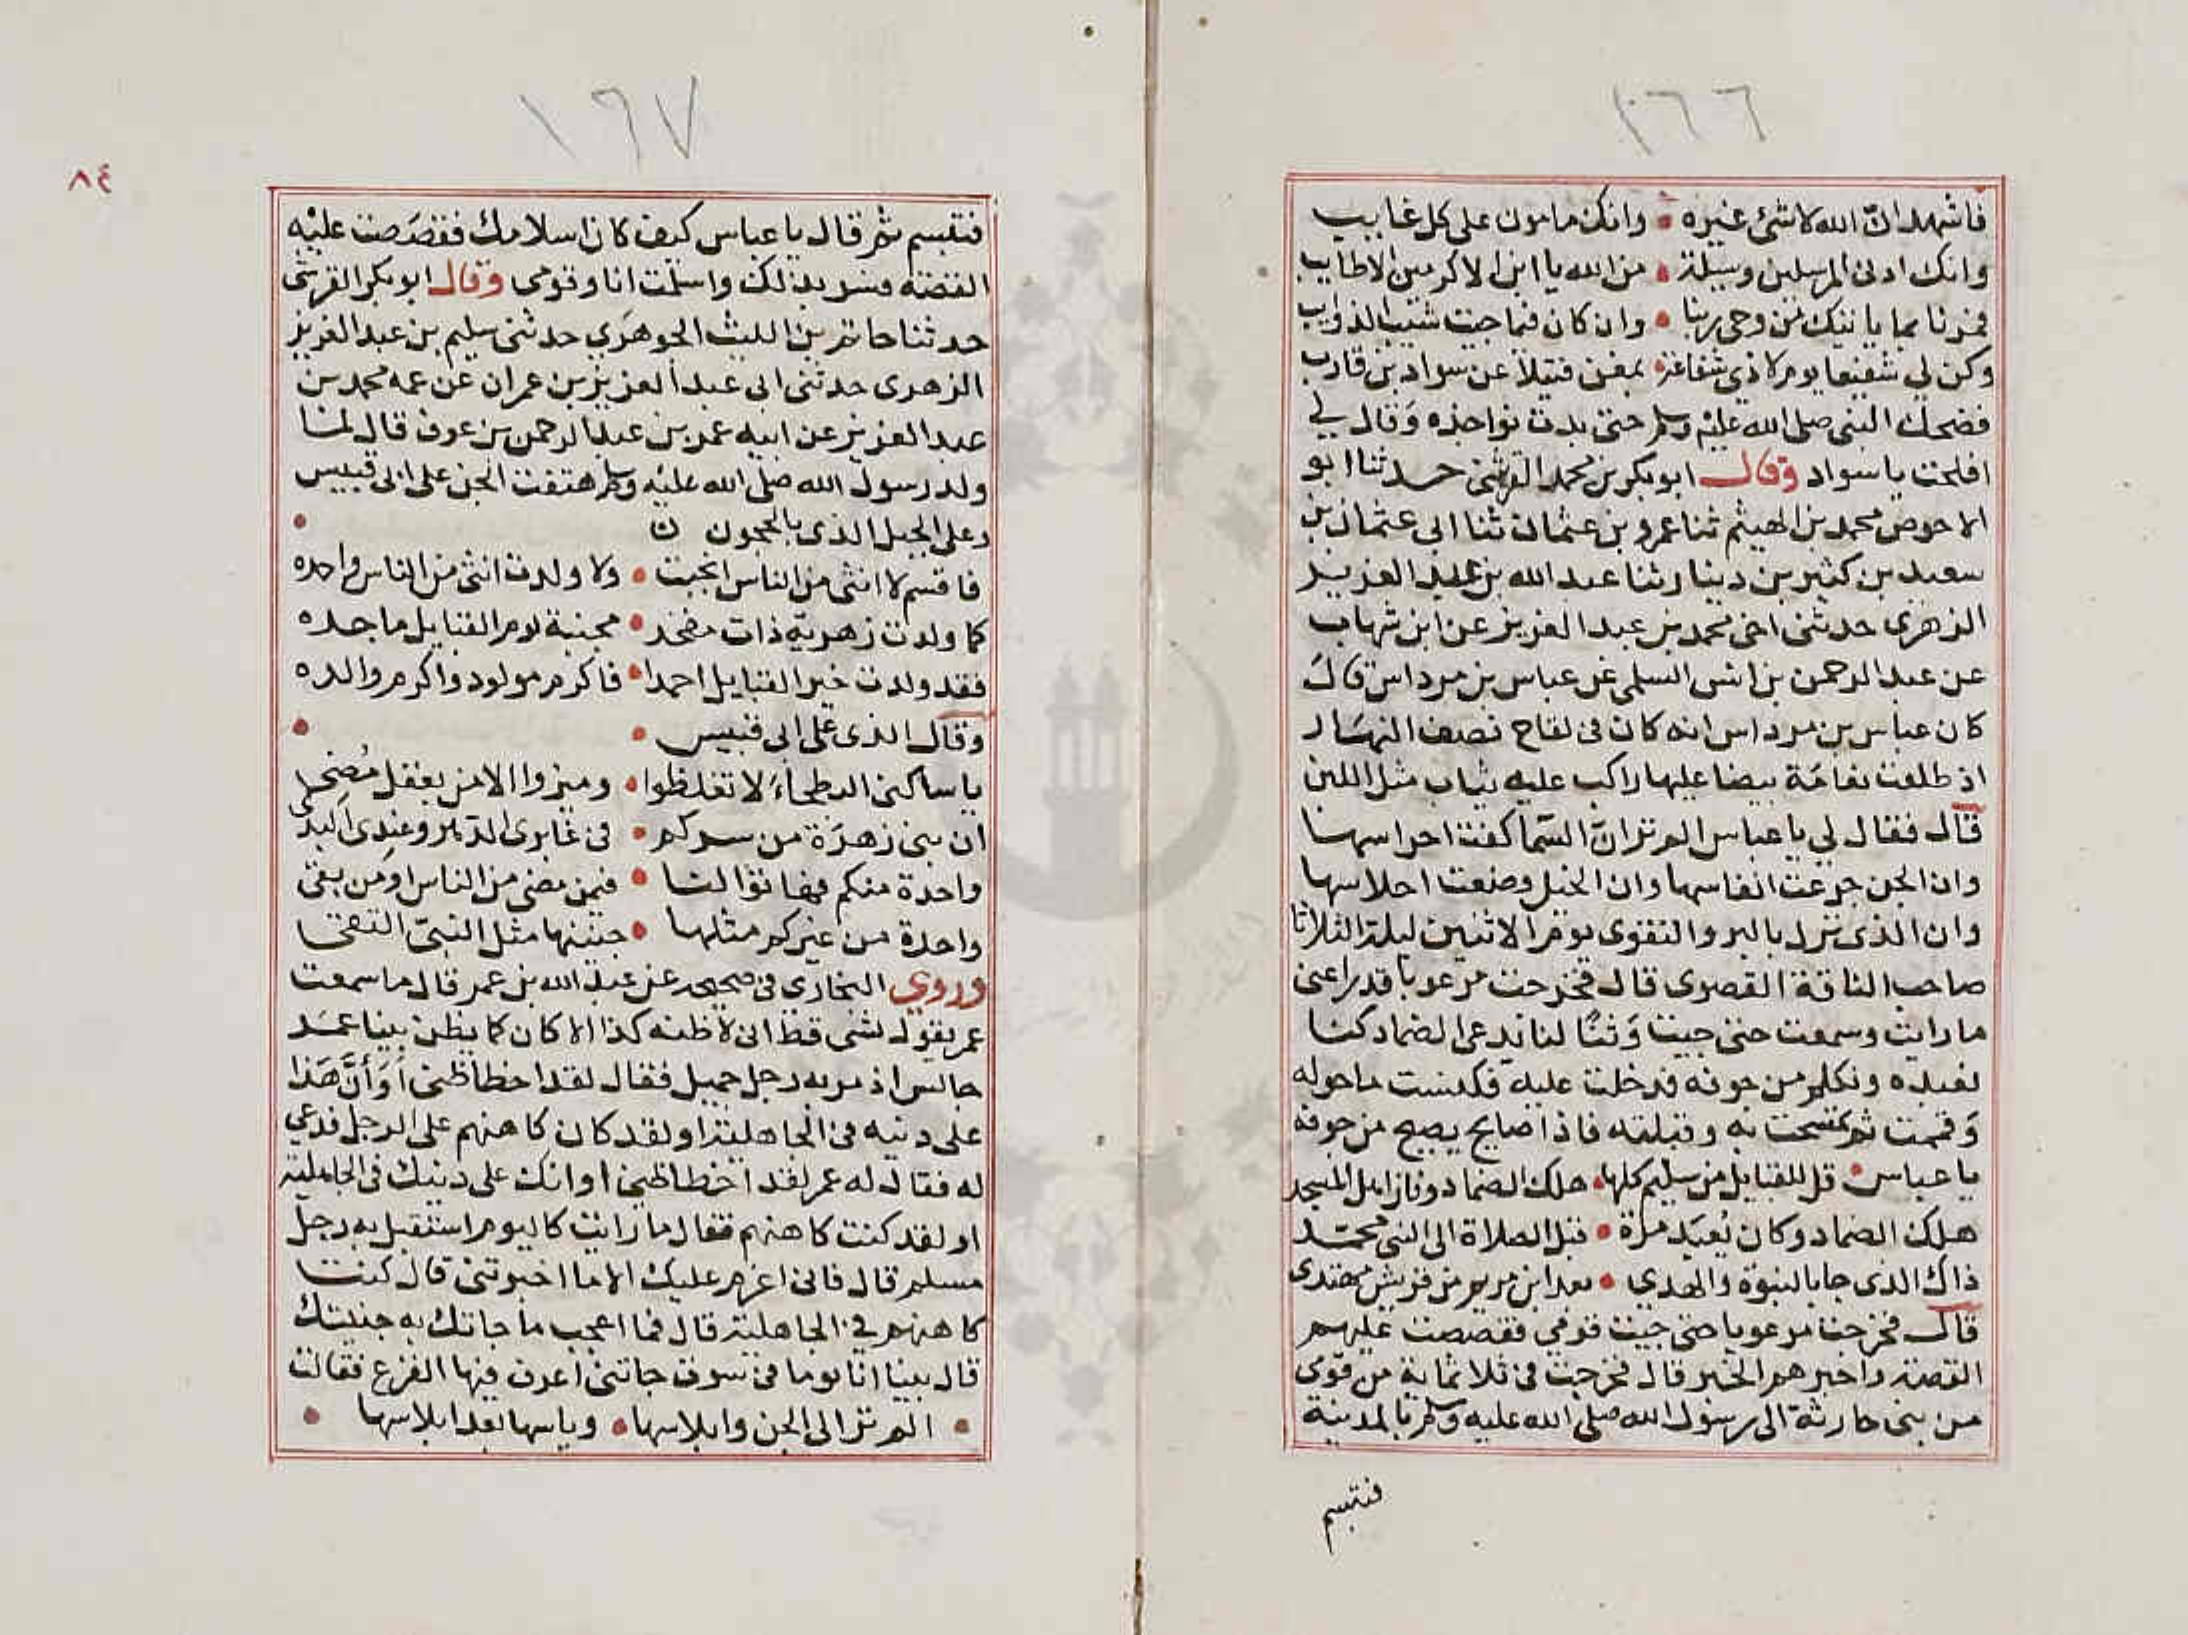 ١٦٦
فاشهد ان الله لا شئ غيره • وانك مامون على كل غايب
وانك ادنى المرسلين وسيلة • من الله يا ابن الاكرمين الاطايب
فمرنا بما ياتيك من وحي ربنا • وان كان فيما جيت شيب الذوايب
وكن لي شفيعا يوم لا ذي شفاعة • بمغن فتيلا عن سواد بن قارب
فضحك النبى صلى الله عليه وسلم حتى بدت نواجذه وقال لي
افلحت يا سواد وقال ابو بكر بن محمد القرشى حدثنا ابو
الاحوص محمد بن الهيثم ثنا عمرو بن عثمان ثنا ابى عثمان بن
سعيد بن كثير بن دينار ثنا عبد الله بن عبد العزيز
الزهرى حدثنى اخى محمد بن عبد العزيز عن ابن شهاب
عن عبد الرحمن بن انس السلمى عن عباس بن مرداس قال
كان عباس بن مرداس انه كان فى لقاح نصف النهار
اذ طلعت نعامة بيضا عليها راكب عليه ثياب مثل اللبن
قال فقال لي يا عباس الم تر ان السما كفت احراسها
وان الجن جرعت انفاسها وان الخيل وضعت احلاسها
وان الذى نزل بالبر والتقوى يوم الاثنين ليلة الثلاثا
صاحب الناقة القصوى قال فخرجت مرعوبا قد راعنى
ما رايت وسمعت حتى جيت وثنا لنا يدعى الضماد كنا
نعبده ونكلم من جوفه فدخلت عليه فكنست ما حوله
وقمت ثم تمسحت به وقبلته فاذا صايح يصيح من جوفه
يا عباس • قل للقبايل من سليم كلها • هلك الضماد وفاز اهل المسجد
هلك الضماد وكان يعبد مرة • قبل الصلاة الى النبى محمد
ذاك الذى جا بالنبوة والهدي • بعد ابن مريم من قريش مهتدى
قال فخرجت مرعوبا حتى جيت قومي فقصصت عليهم
القصة واخبرهم الخبر قال فخرجت فى ثلاثماية من قومى
من بنى حارثة الى رسول الله صلى الله عليه وسلم بالمدينة
فتبسم
١٦٧
٨٤
فتبسم ثم قال يا عباس كيف كان اسلامك فقصصت عليه
القصة فسر بذلك واسلمت انا وقومى وقال ابو بكر القرشى
حدثنا حاتم بن الليث الجوهري حدثنى سليم بن عبد العزيز
الزهرى حدثنى ابى عبد العزيز بن عمران عن عمه محمد بن
عبد العزيز عن ابيه عمر بن عبد الرحمن بن عوف قال لما
ولد رسول الله صلى الله عليه وسلم هتفت الجن على ابى قبيس
وعلى الجبل الذى بالحجون ن •
فاقسم لا انثى من الناس انجبت • ولا ولدت انثى من الناس واحده
كما ولدت زهرية ذات مفخر • مجنبة لوم القبايل ماجده
فقد ولدت خير القبايل احمدا • فاكرم مولود واكرم والده
وقال الذى على ابى قبيس • •
يا ساكنى البطحاء لا تغلطوا • وميزوا الامر بعقل مضى
ان بنى زهرة من سركم • فى غابر الدهر وعند البد
واحدة منكم فهاتوا لنا • فيمن مضى من الناس او من بقى
واحدة من غيركم مثلها • جنينها مثل النبى التقى
وروي البخارى فى صحيحه عن عبد الله بن عمر قال ما سمعت
عمر يقول لشى قط انى لاظنه كذا الا كان كما يظن بينا عمر
جالس اذ مر به رجل جميل فقال لقد اخطا ظنى او أن هذا
على دينه فى الجاهلية او لقد كان كاهنهم على الرجل فدعي
له فقال له عمر لقد اخطا ظنى او انك على دينك فى الجاهلية
او لقد كنت كاهنهم فقال ما رايت كاليوم استقبل به رجل
مسلم قال فانى اعزم عليك الا ما اخبرتنى قال كنت
كاهنهم في الجاهلية قال فما اعجب ما جاتك به جنيتك
قال بينا انا يوما فى سوق جاتنى اعرف فيها الفزع فقالت
• الم تر الى الجن وابلاسها • وياسها بعد ابلاسها •